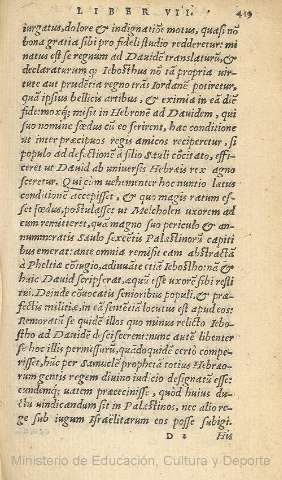 LIBER VII. 419
iurgatus, dolore & indignatiōe motus, quasi nō
bona gratia sibi pro fideli studio redderetur: mi
natus est se regnum ad Dauidē translaturū, &
declaraturum qꝫ Iebosthus nō tā propria vir-
tute aut prudētia regno trās Iordanē potiretur,
quā ipsius bellicis artibus, & eximia in eā diē
fide: moxqꝫ misit in Hebronē ad Dauidem, qui
suo nomine fœdus cū eo ferirent, hac conditione
ut inter præcipuos regis amicos reciperetur, si
populo ad defectionē à filio Sauli cōcitato, effi-
ceret ut Dauid ab uniuersis Hebræis rex agno
sceretur. Qui cùm uehementer hoc nuntio lætus
conditionē accepisset, & quo magis ratum es-
set fœdus, postulasset ut Melcholen uxorem ad
eum remitteret, quā magno suo periculo & an-
numeratis Saulo sexcētis Palæstinorū capiti
bus emerat: ante omnia remisit eam abstractā
à Pheltia cōiugio, adiuuāte etiā Iebostho: nā &
huic Dauid scripserat, aequū esse uxorē sibi resti
tui. Deinde cōuocatis senioribus populi, & præ-
fectis militiæ, in eā sentētiā locutus est apud eos:
Remoratū se quidē illos quo minus relicto Iebo
stho ad Dauidē desciscerent: nunc autē libenter
se hoc illis permissurū, quādoquidē certò compe-
risset, hūc per Samuelē prophetā totius Hebræo-
rum gentis regem diuino iudicio designatū esse:
eundemqꝫ uatem præcepinisse, quòd huius du-
ctu uindicandum sit in Palæstinos, nec alio re-
ge sub iugum Israëlitarum eos posse subigi.
D 2 His
Ministerio de Educación, Cultura y Deporte